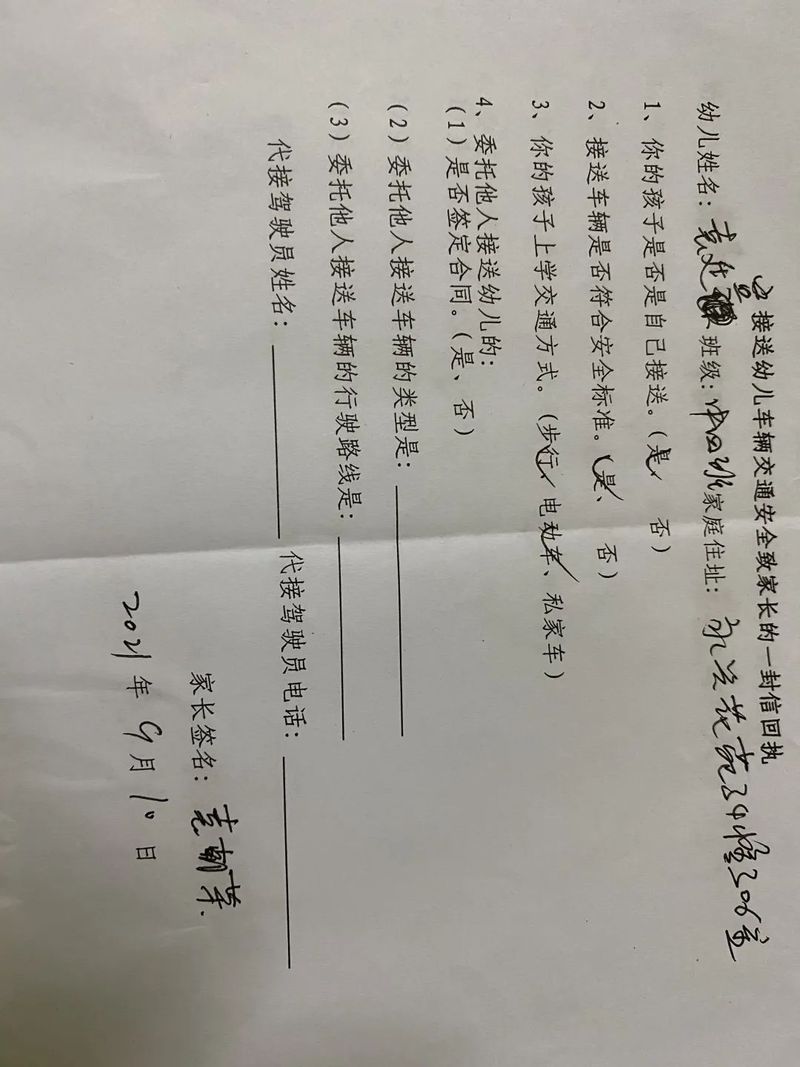 接送幼儿车辆交通安全致家长的一封信回执
幼儿姓名: 班级:中四班 家庭住址: 永兴花苑34幢306室
1、你的孩子是否是自己接送。(是、 否)
2、接送车辆是否符合安全标准。(是、 否)
3、你的孩子上学交通方式。(步行、电动车、私家车)
4、委托他人接送幼儿的:
(1)是否签定合同。(是、 否)
(2)委托他人接送车辆的类型是:
(3)委托他人接送车辆的行驶路线是:
代接驾驶员姓名: 代接驾驶员电话:
家长签名:
2021年9月10日